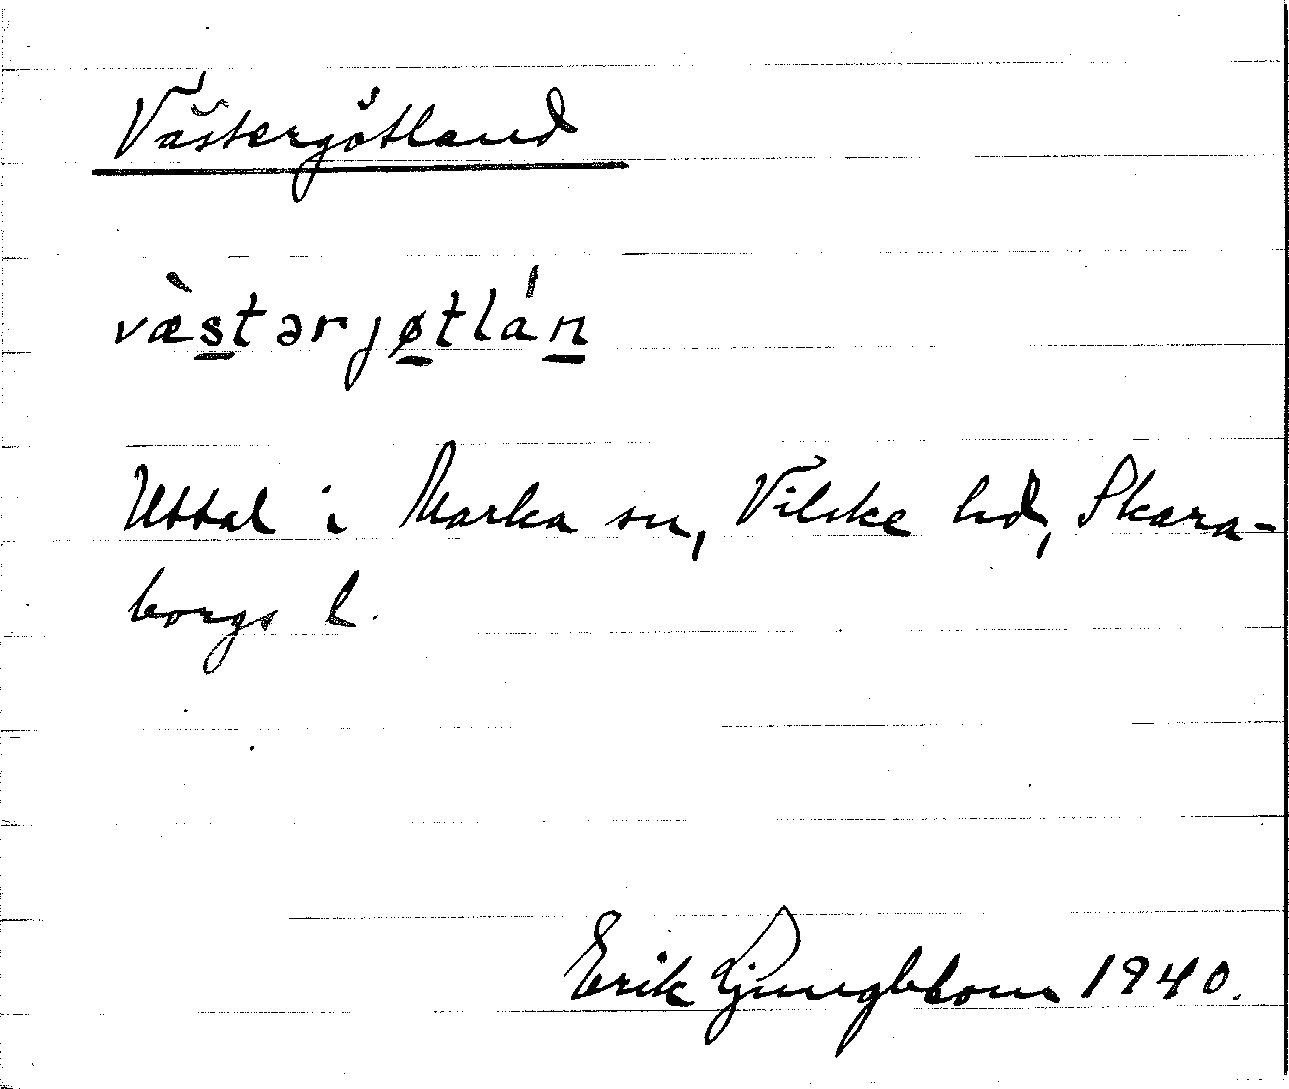 Västergötland
væ̀s̲tərjø̲tlán̲
Uttal i Marka sn, Vilske hd, Skara-
borgs l.
Erik Ljungblom 1940.